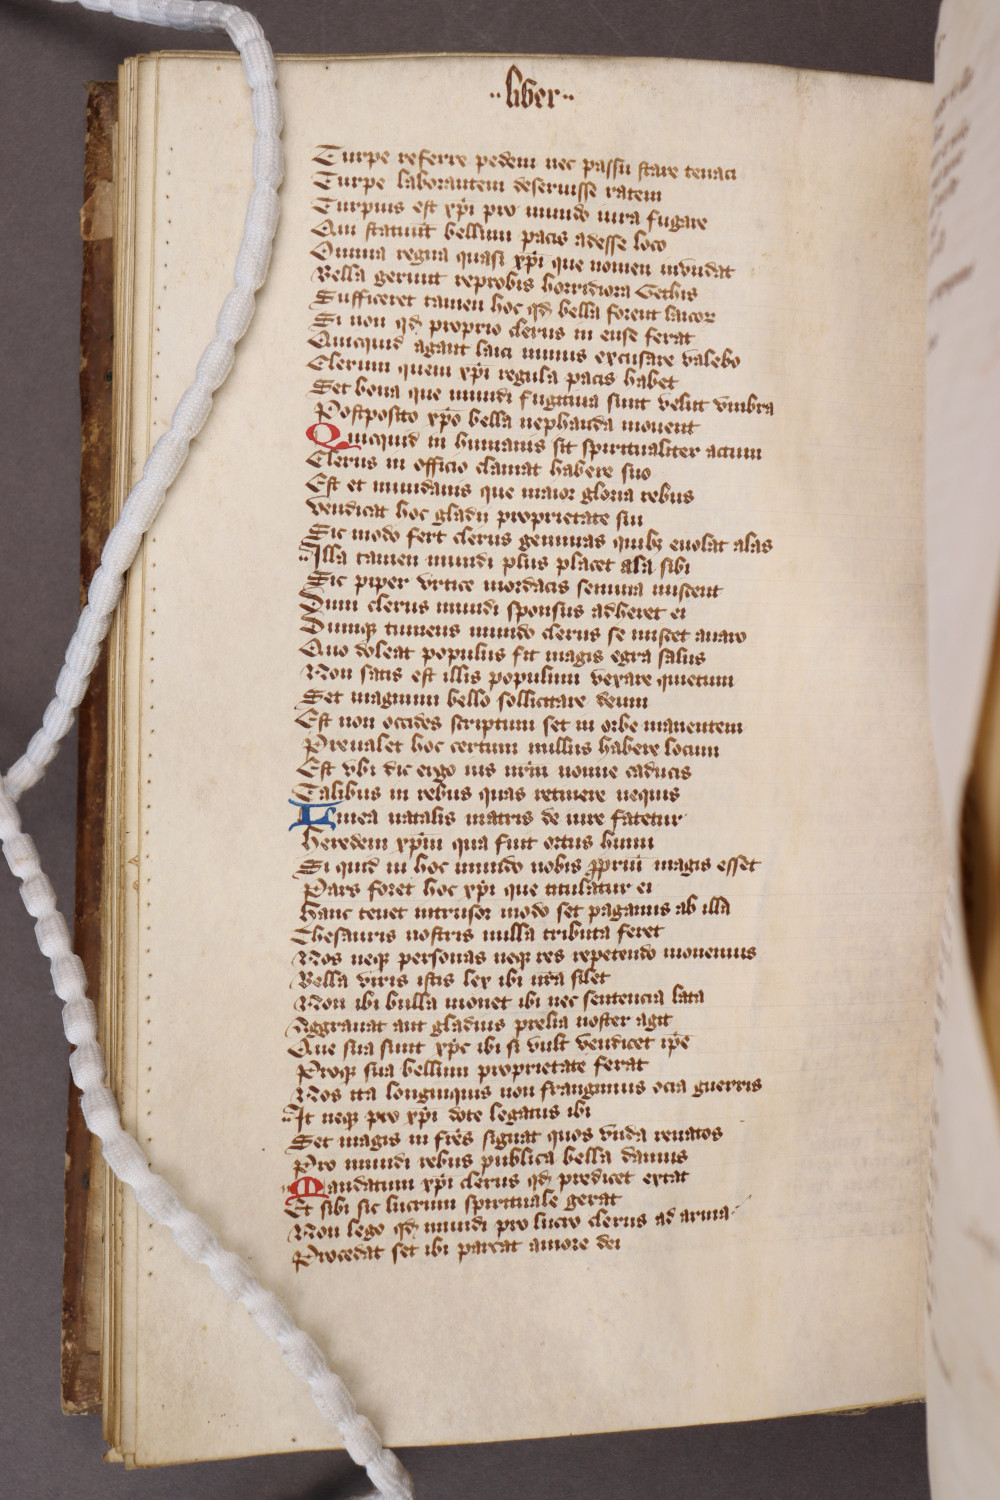 ··liber··
Turpe referre pedem nec passu stare tenaci
Turpe laborantem deseruisse ratem
Turpius est xp̄i pro mundo iura fugare
Qui statuūt bellum pacis adesse loco
Omnia regna quasi xp̄i que nomen inundat
Bella gerunt reprobis horridiora Gethis
Sufficeret tamen hoc qd̄ bella forent laicor
Si non qd̄ proprio clerus in ense ferat
Quicquid agant laici minus excusare valebo
Clerum quem xp̄i regula pacis habet
Set bona que mundi fugitiua sunt velut vmbra
Postposito xp̄o bella nephanda mouent
Quicquid in humanis sit spiritualiter actum
Clerus in officio clamat habere suo
Est et mundanis que maior gloria rebus
vendicat hoc gladii proprietate sui
Sic modo fert clerus geminas quibȝ euolat alas
Illa tamen mundi plus placet ala sibi
Sic piper vrtice mordacis semina miscent
Dum clerus mundi sponsus adheret ei
Dumqȝ tumens mundo clerus se miscet auaro
Quo doleat populus fit magis egra salus
Non satis est illis populum vexare quietum
Set magnum bello sollicitare deum
Est non occides scriptum set in orbe manentem
Preualet hoc certum nullus habere locum
Est vbi dic ergo ius nr̄m nonne caducis
Talibus in rebus quas retinere nequis
Linea natalis matris de iure fatetur
Heredem xp̄m qua fuit ortus humi
Si quid in hoc mundo nobis ꝓpriū magis esset
Pars foret hoc xp̄i que titulatur ei
Hanc tenet intrusor modo set paganus ab illa
Thesauris nostris nulla tributa feret
Nos neqȝ personas neqȝ res repetendo mouemus
Bella viris istis lex ibi nr̄a silet
Non ibi bulla monet ibi nec sentencia lata
Aggrauat aut gladius prelia noster agit
Que sua sunt xp̄c ibi si vult vendicet ip̄e
Proqȝ sua bellum proprietate ferat
Nos ita longinquis non frangimus ocia guerris
It neqȝ pro xp̄i dote legatus ibi
Set magis in fr̄es signat quos vnda renatos
Pro mundi rebus publica bella damus
Mandatum xp̄i clerus qd̄ predicet extat
Et sibi sic lucrum spirituale gerat
Non lego qd̄ mundi pro lucro clerus ad arma
Procedat set ibi parcat amore dei